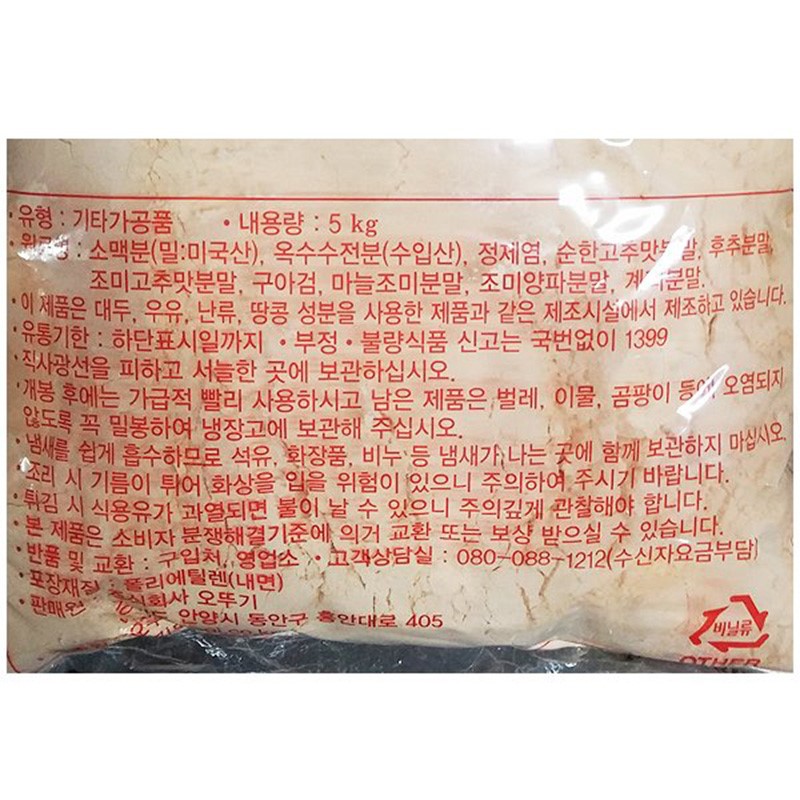 • 유형 : 기타가공품 • 내용량 : 5 kg
• : 소맥분(밀:미국산), 옥수수전분(수입산), 정제염, 순한고추맛분말, 후추분말,
조미고추맛분말, 구아검, 마늘조미분말, 조미양파분말,
• 이 제품은 대두, 우유, 난류, 땅콩 성분을 사용한 제품과 같은 제조시설에서 제조하고 있습니다.
• 유통기한 : 하단표시일까지 • 부정 • 불량식품 신고는 국번없이 1399
• 직사광선을 피하고 서늘한 곳에 보관하십시오.
• 개봉 후에는 가급적 빨리 사용하시고 남은 제품은 벌레, 이물, 곰팡이 등에 오염되지
않도록 꼭 밀봉하여 냉장고에 보관해 주십시오.
• 냄새를 쉽게 흡수하므로 석유, 화장품, 비누 등 냄새가 나는 곳에 함께 보관하지 마십시오.
• 조리 시 기름이 튀어 화상을 입을 위험이 있으니 주의하여 주시기 바랍니다.
• 튀김 시 식용유가 과열되면 불이 날 수 있으니 주의깊게 관찰해야 합니다.
• 본 제품은 소비자 분쟁해결기준에 의거 교환 또는 보상 받으실 수 있습니다.
• 반품 및 교환 : 구입처, 영업소 • 고객상담실 : 080-088-1212(수신자요금부담)
• 포장재질 : 폴리에틸렌(내면)
• 판매원 주식회사 오뚜기
안양시 동안구 흥안대로 405
비닐류
OTHER